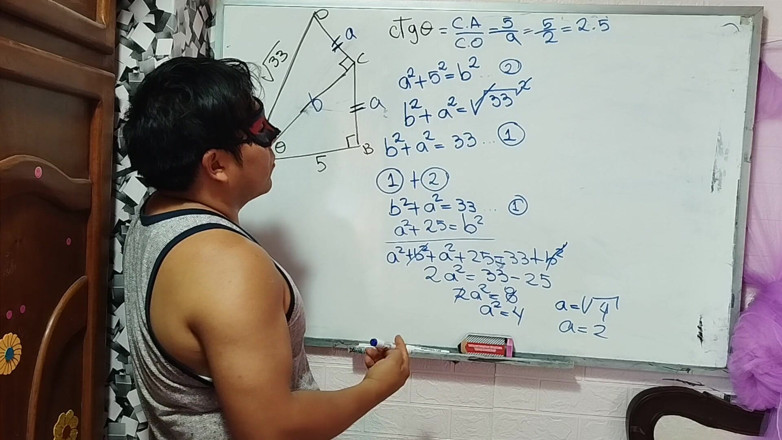 D
a
√33
C
b
a
θ
5
B
ctgθ = C.A/C.O = 5/a = 5/2 = 2.5
a²+5²=b² ②
b²+a²=√33²
b²+a²=33 ... ①
①+②
b²+a²=33 ... ①
a²+25=b²
a²+b²+a²+25=33+b²
2a²=33-25
2a²=8
a²=4
a=√4
a=2